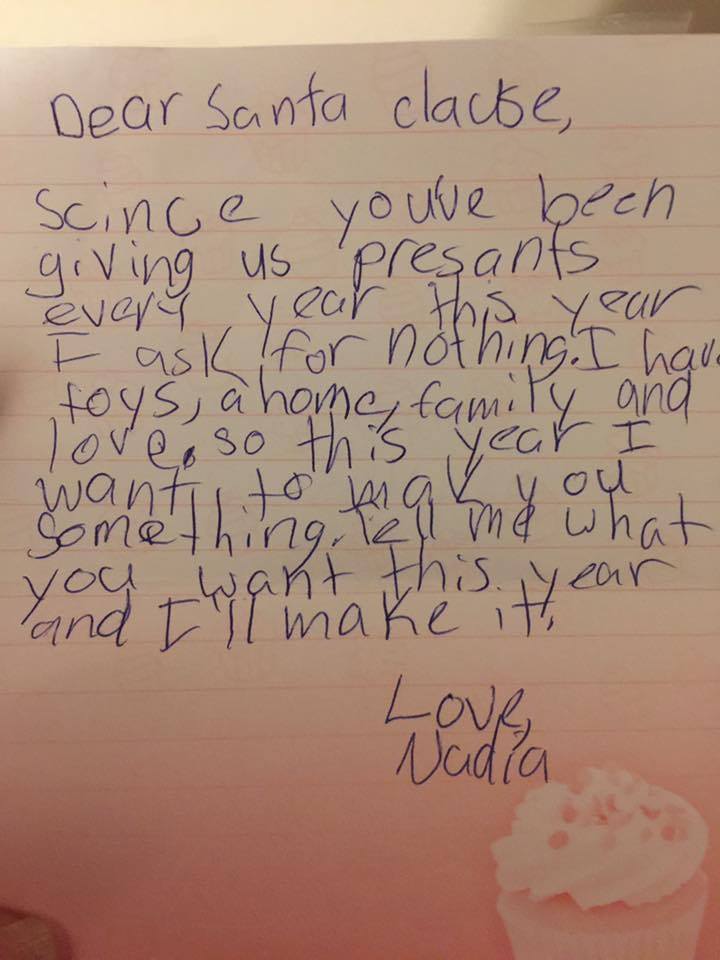 Dear Santa clause,
Scince you've been
giving us presants
every year this year
I ask for nothing. I have
toys, a home, family and
love. so this year I
want to mak you
something. Tell me what
you want this year
and I'll make it.
Love,
Nadia